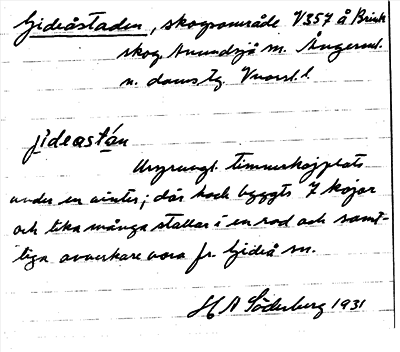 Gideåstaden, skogsområde V357 å Brisk
skog Anundsjö sn. Ångerml.
n. doms Vnorrl.
jídeastán
Ursprungl. timmerkojplats
under en vinter; där hade byggts 7 kojor
och lika många stallar i en rad och samt-
liga avverkare voro fr. Gideå sn.
H A Söderberg 1931